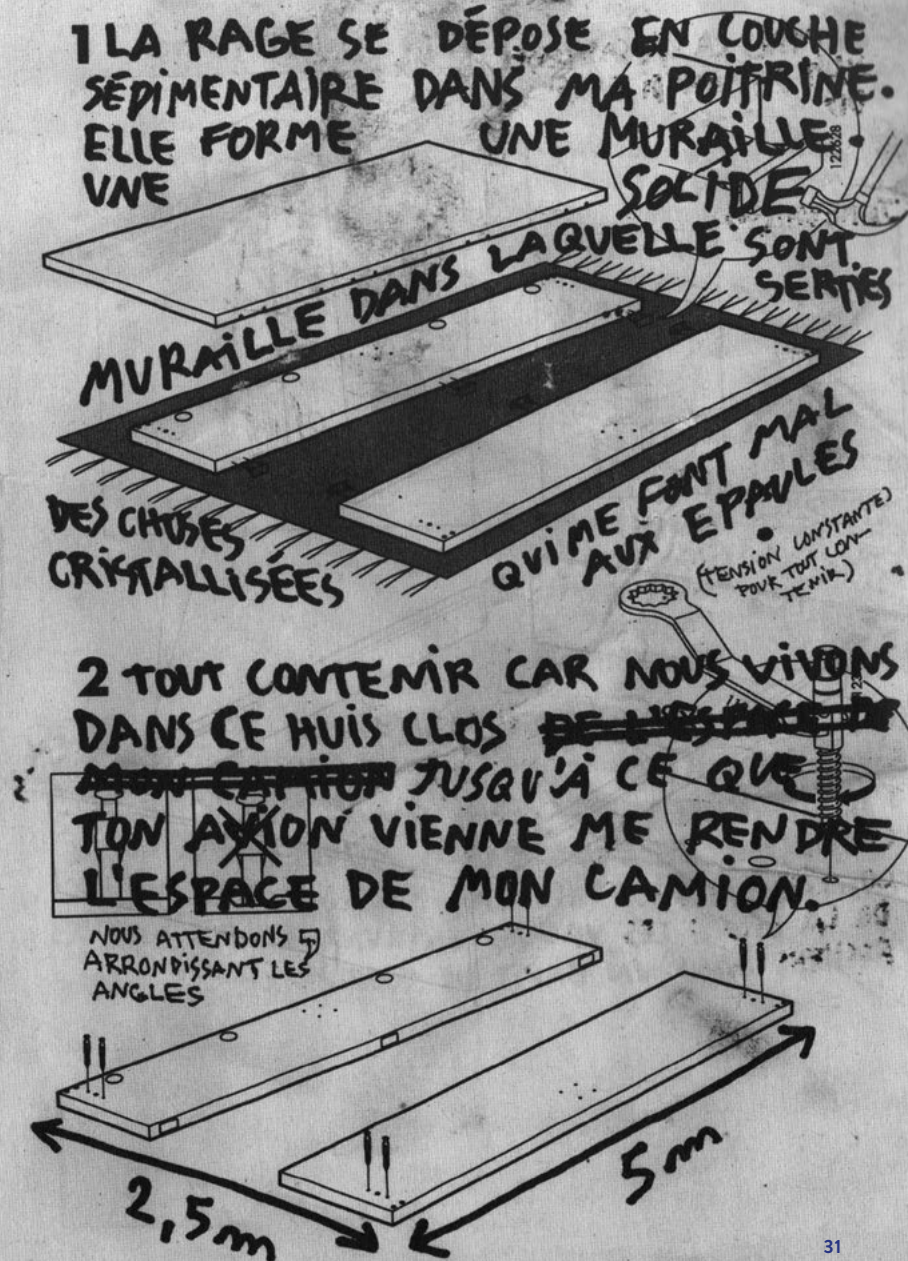 1 LA RAGE SE DÉPOSE EN COUCHE
SÉDIMENTAIRE DANS MA POITRINE.
ELLE FORME UNE MURAILLE.
UNE SOLIDE
MURAILLE DANS LAQUELLE SONT
SERTIES
DES CHOSES
CRISTALLISÉES
QUI ME FONT MAL
AUX EPAULES.
(TENSION CONSTANTE)
POUR TOUT CON-
TENIR)
122628
2 TOUT CONTENIR CAR NOUS VIVONS
DANS CE HUIS CLOS DE L'ESPACE DE
MON CAMION JUSQU'À CE QUE
TON AVION VIENNE ME RENDRE
L'ESPACE DE MON CAMION.
NOUS ATTENDONS
ARRONDISSANT LES
ANGLES
2,5m
5m
31